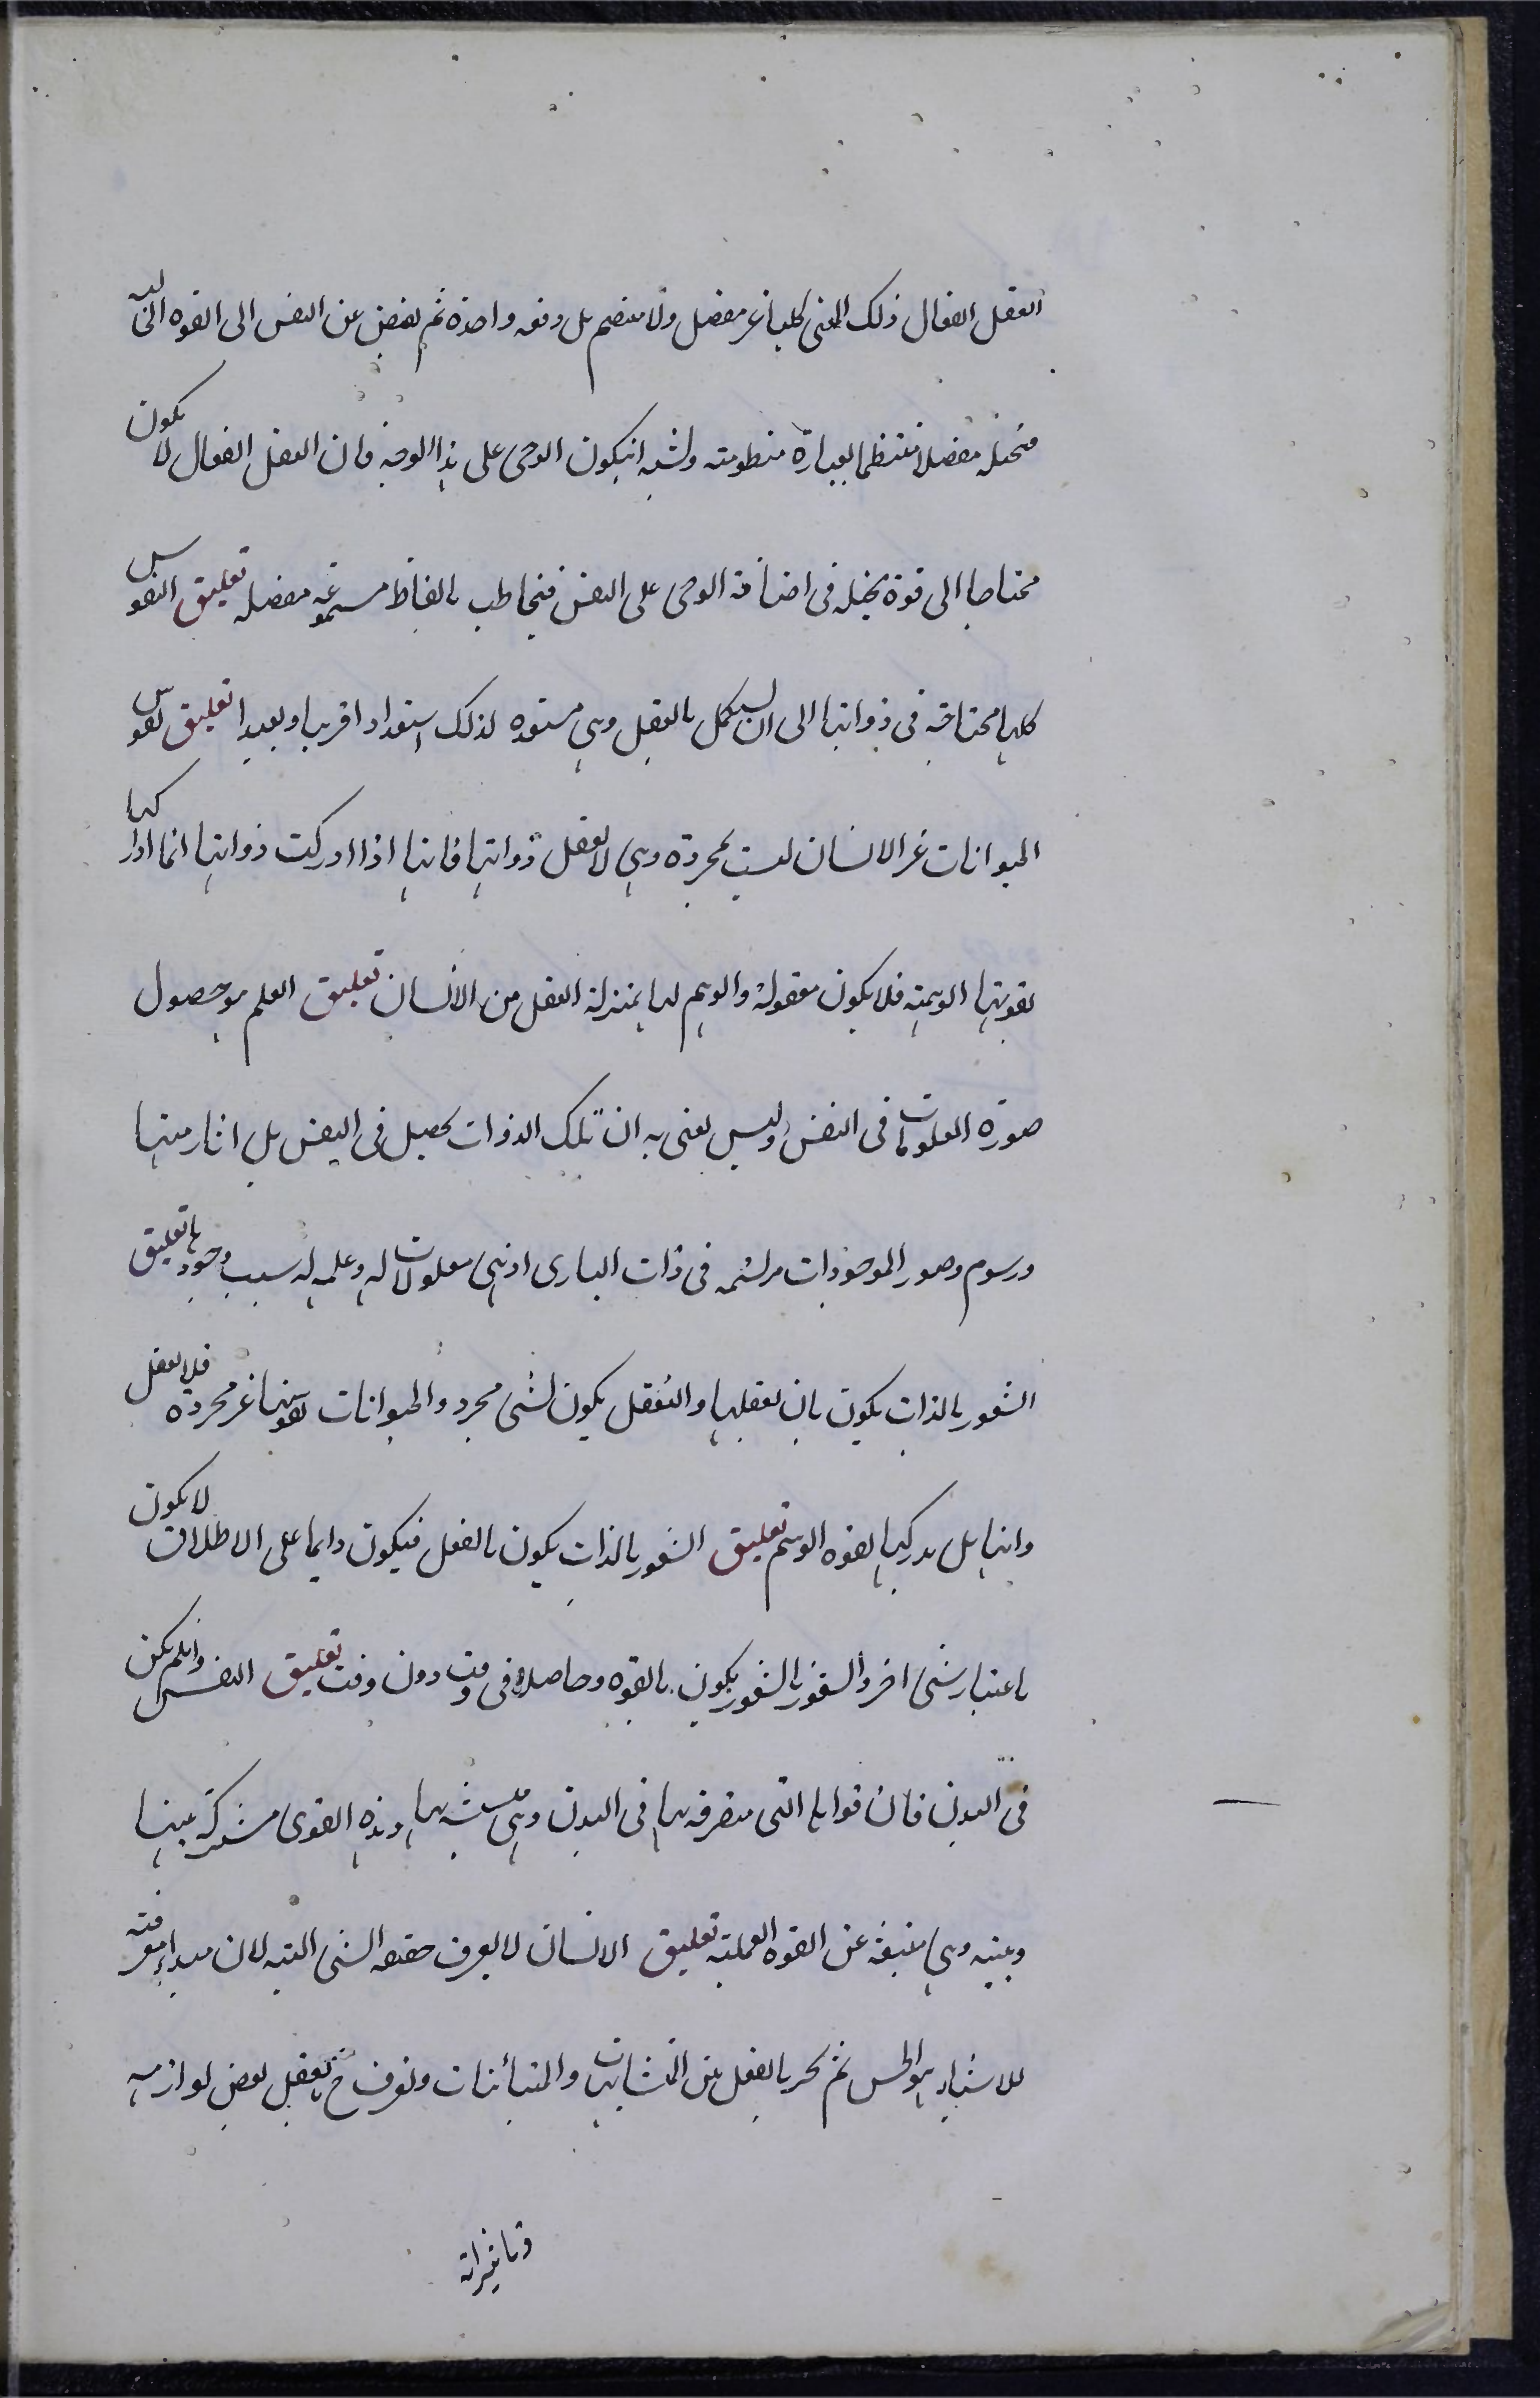 العقل الفعال ذلك المعنى كليا غير مفصل ولا منضم بل دفعه واحده ثم يفيض عن النفس الى القوه الخياليه
فتخيله مفصلا منتظما بعبارة منظومته ويشبه انيكون الوحى على هذا الوجه فان العقل الفعال لا يكون
محتاجا الى قوة تخيله فى اضافه الوحى على النفس فيخاطب بالفاظ مسموعه مفصله تعليق النفوس
كلها محتاجه فى ذواتها الى ان يستكمل بالعقل وهى مستعده لذلك استعدادا قريبا و بعيدا تعليق نفوس
الحيوانات غير الانسان ليست بمجردة وهى لا تعقل ذواتها فانها اذا ادركت ذواتها انما ادراكها
بقوتها الوهميه فلا يكون معقولة والوهم لها بمنزلة العقل من الانسان تعليق العلم هو حصول
صورة المعلومات فى النفس وليس يعنى به ان تلك الذوات يحصل فى النفس بل اثار منها
ورسوم وصور الموجودات مرتسمه فى ذات البارى اذ هى معلولات له وعلمه له سبب وجودها تعليق
الشعور بالذات يكون بان يعقلها والتعقل يكون لشى مجرد والحيوانات نفوسها غير مجرده فلا يعقل
ذاتها بل يدركها بقوه الوهم تعليق الشعور بالذات يكون بالفعل فيكون دايما على الاطلاق لا يكون
باعتبار شى اخر والشعور بالشعور يكون بالقوه وحاصلا فى وقت دون وقت تعليق النفس وانلم يكن
فى البدن فان قواها التى متصرفه بها فى البدن وهى متشبثه بها وهذه القوى مشتركه بينها
وبينه وهى منبعثه عن القوه العمليه تعليق الانسان لا يعرف حقيقه الشى البته لان مبداء معرفته
للاشياء هو الحس ثم يميز بالعقل بين المتشابهات والمتباينات ويعرف ح بالعقل بعض لوازمه
وتاثيراته